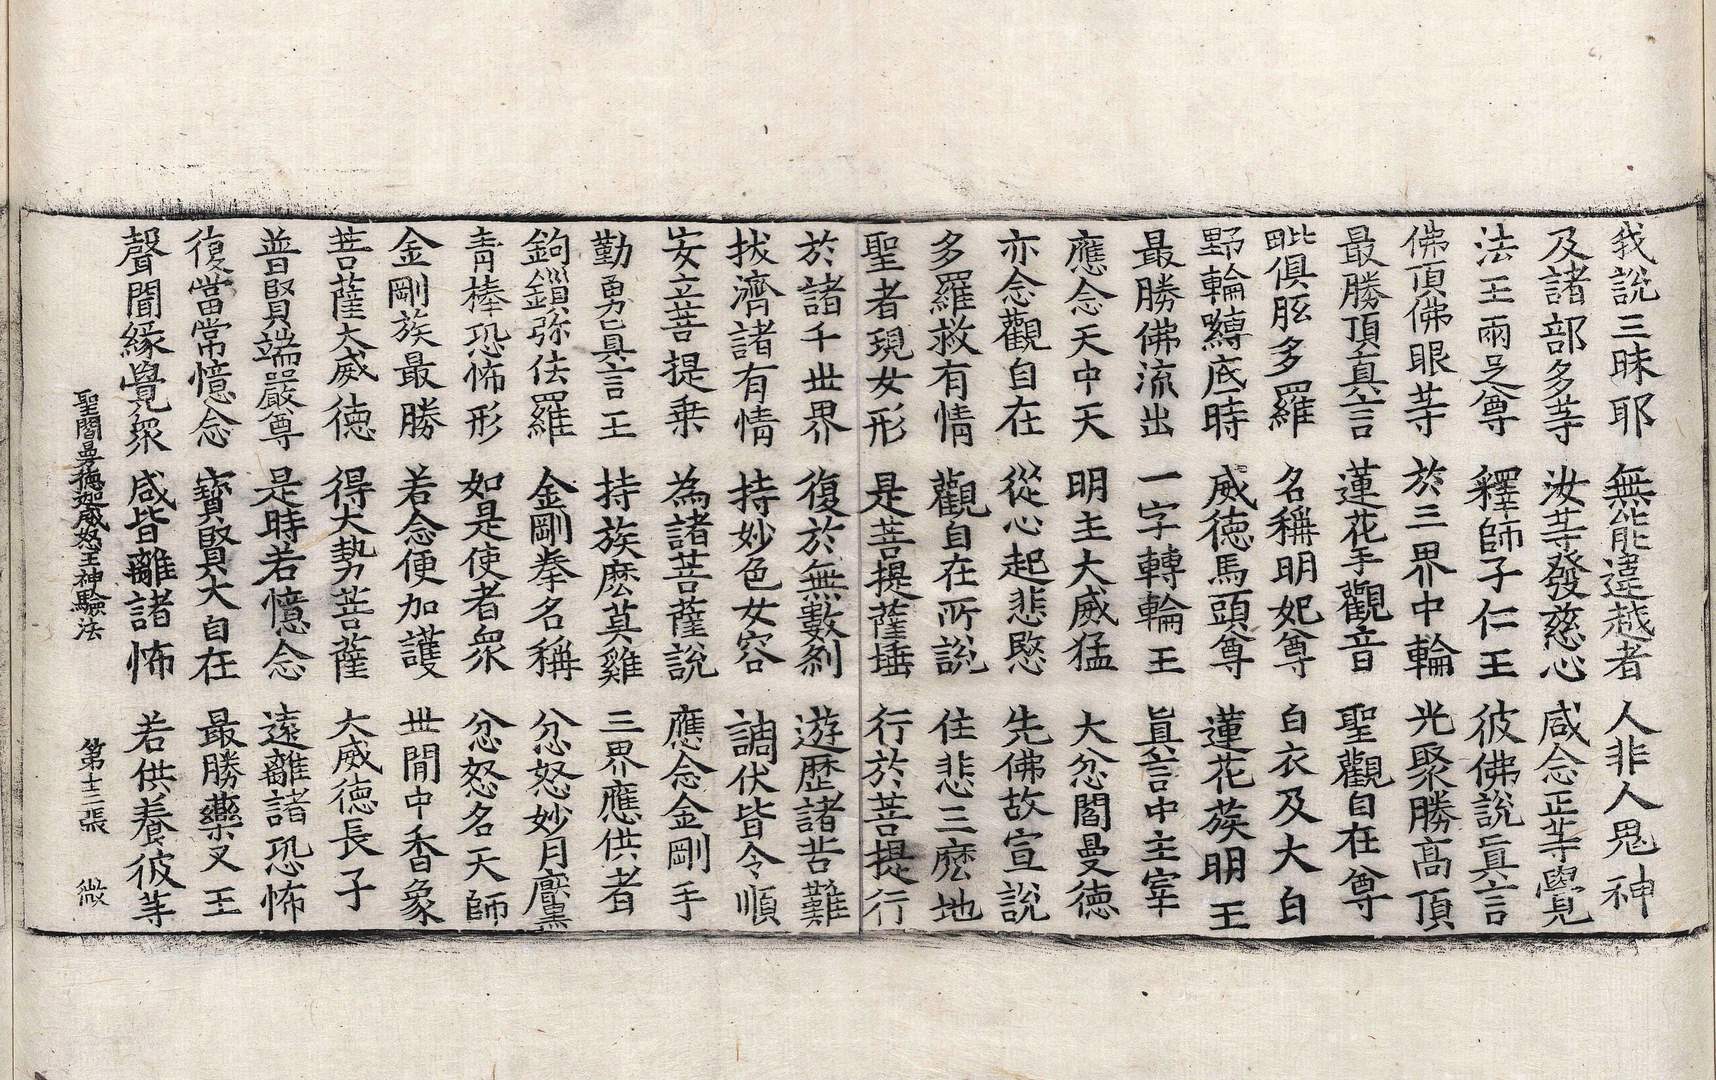 我說三昧耶　無能違越者　人非人鬼神
及諸部多等　汝等發慈心　咸念正等覺
法王兩足尊　釋師子仁王　彼佛說眞言
佛頂佛眼等　於三界中輪　光聚勝高頂
最勝頂眞言　蓮花手觀音　聖觀自在尊
毗俱胝多羅　名稱明妃尊　白衣及大白
野輪縛底時　威德馬頭尊　蓮花族明王
最勝佛流出　一字轉輪王　眞言中主宰
應念天中天　明主大威猛　大忿閻曼德
亦念觀自在　從心起悲愍　先佛故宣說
多羅救有情　觀自在所說　住悲三麽地
聖者現女形　是菩提薩埵　行於菩提行
於諸千世界　復於無數刹　遊歷諸苦難
拔濟諸有情　持妙色女容　調伏皆令順
安立菩提乗　為諸菩薩說　應念金剛手
勤勇眞言王　持族麽莫雞　三界應供者
鉤鎖弥佉羅　金剛拳名稱　忿怒妙月黡
青棒恐怖形　如是使者衆　忿怒名天師
金剛族最勝　若念便加護　世間中香象
菩薩大威德　得大勢菩薩　大威德長子
普賢端嚴尊　是時若憶念　遠離諸恐怖
復當常憶念　寶賢大自在　最勝藥叉王
聲聞緣覺衆　咸皆離諸怖　若供養彼等
聖閻曼德迦威怒王神驗法　第十二張　微